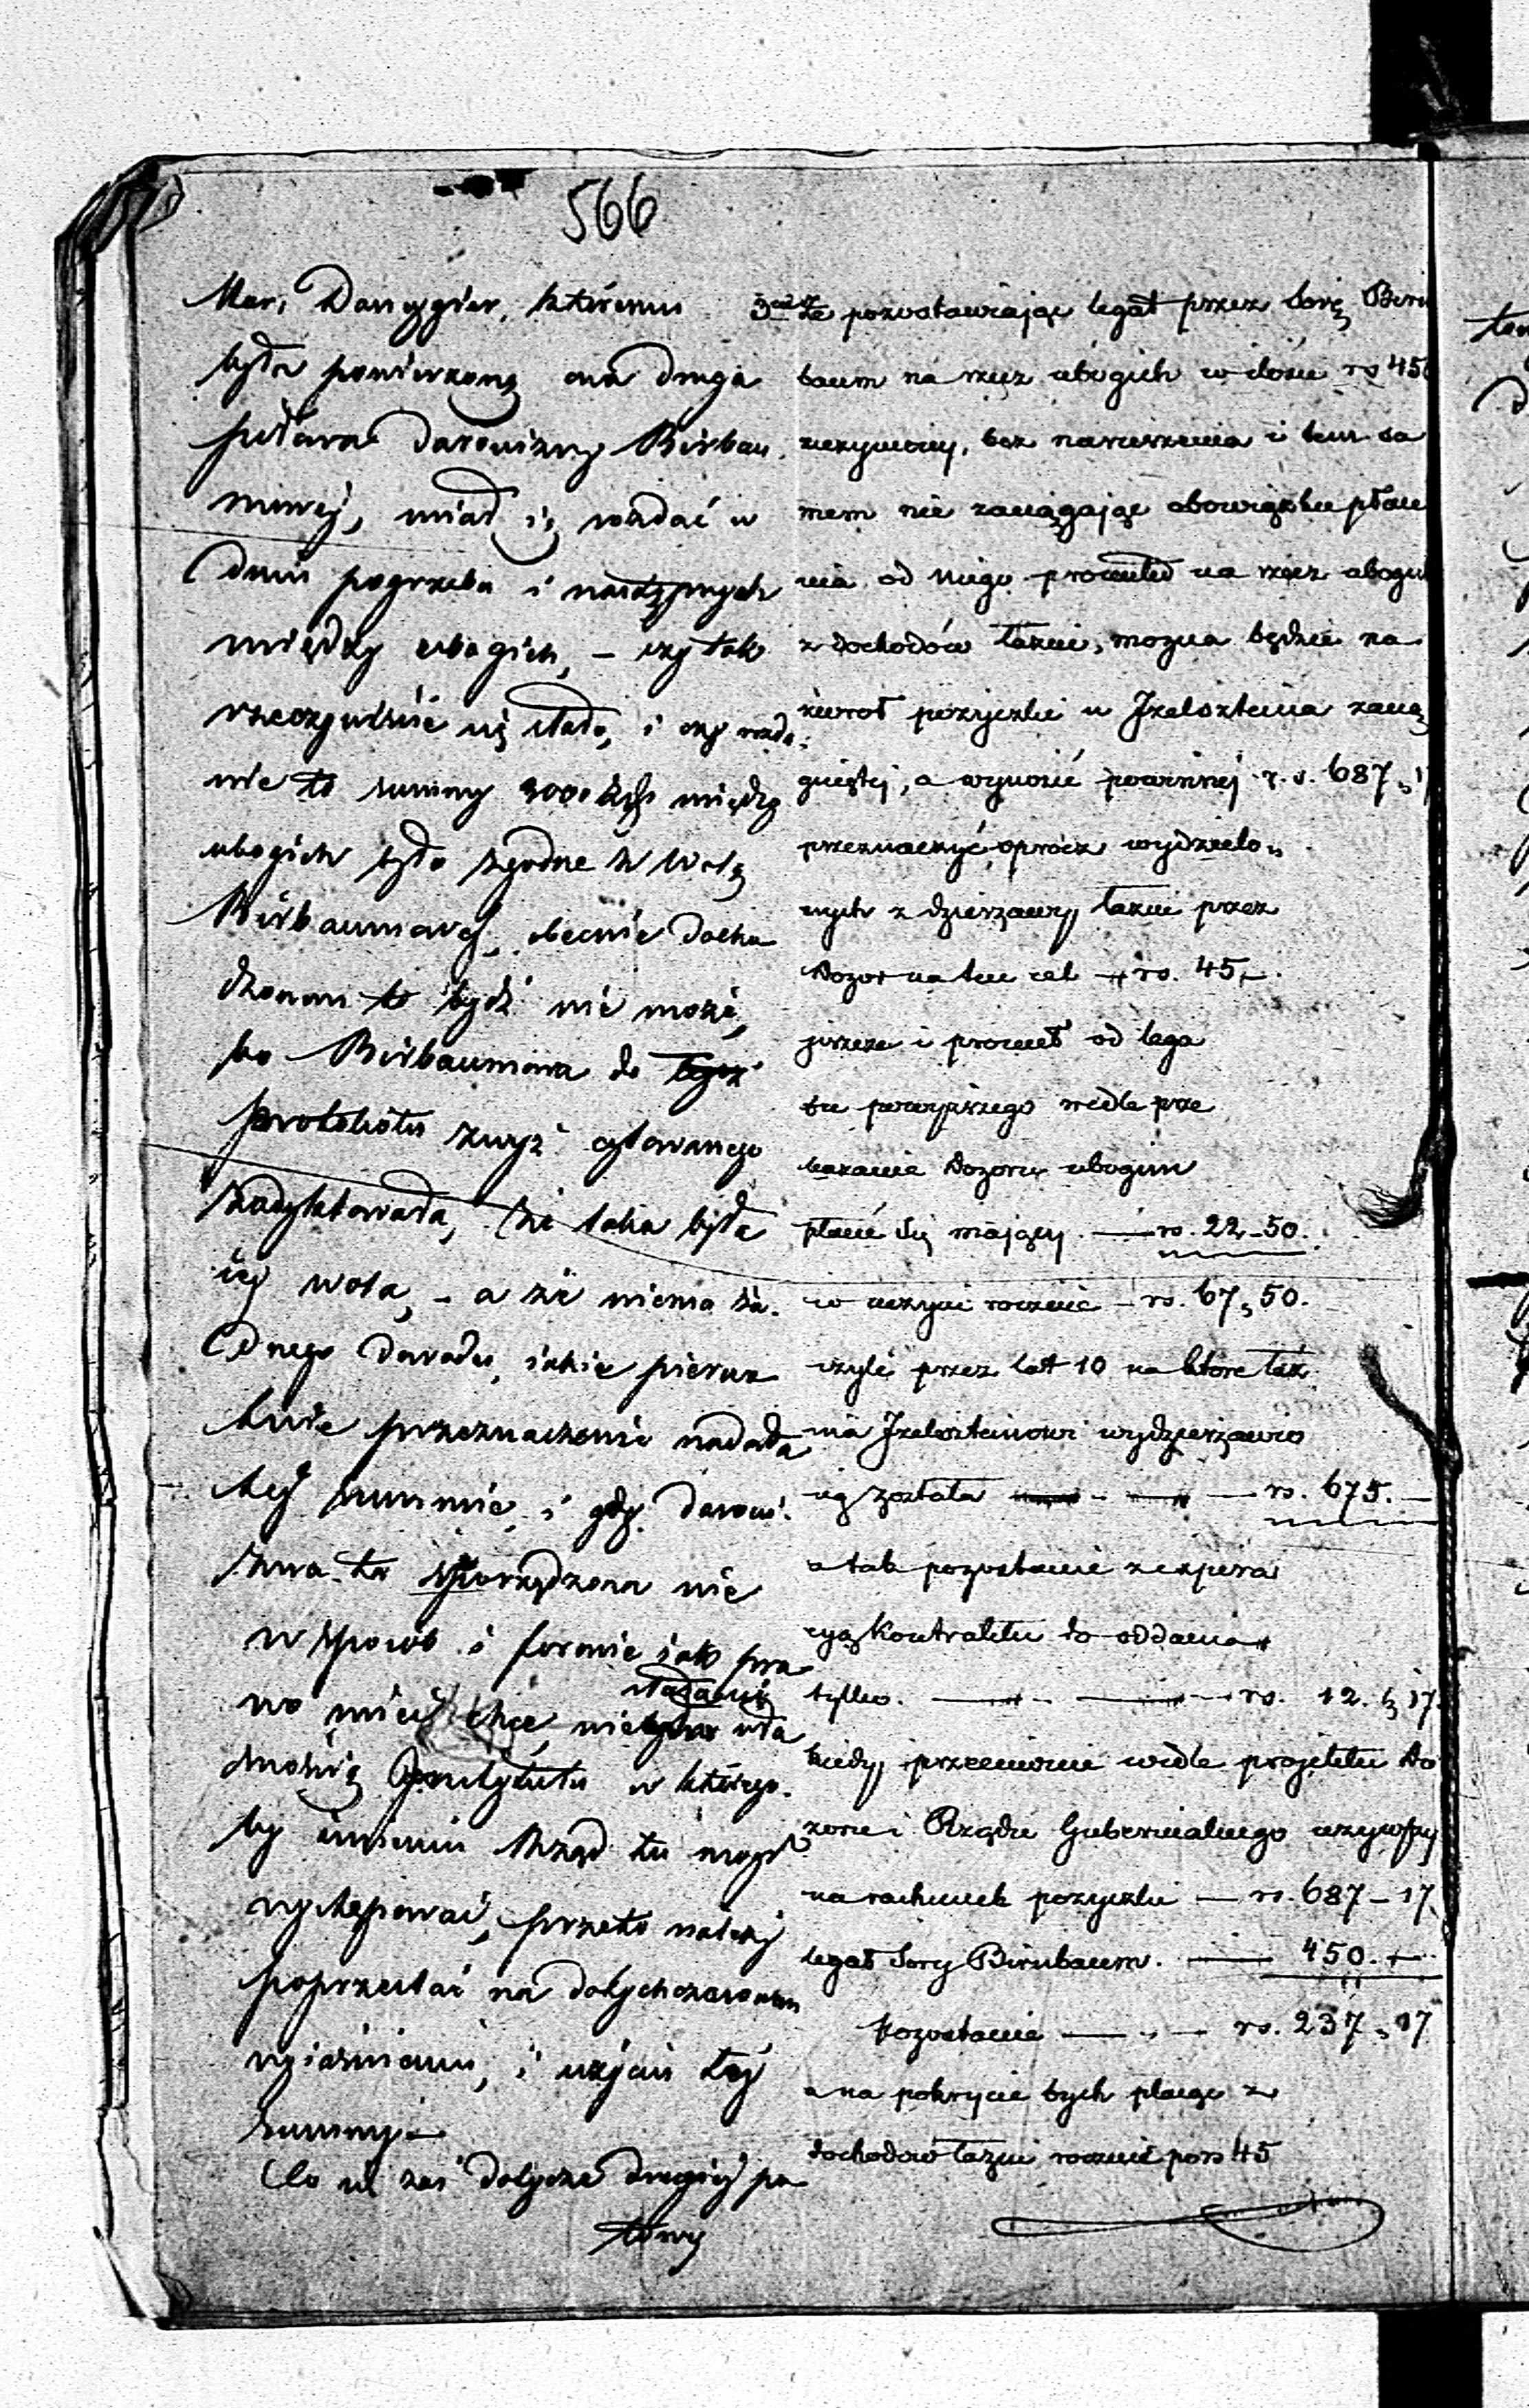 566
Mar: Dancygier, któremu
była powierzoną ona druga
połowa darowizny Birbau
mowej, miał ją rozdać w
dniu pogrzebu i następnych
między ubogich, – czy tak
rzeczywiście się stało, i czy rozda-
nie to summy 3000 między
ubogich było zgodne z wolą
Birbaumowej, obecnie docho
dzonem to bydź nie może,
bo Birbaumowa do tegoż
protokołu zwyż cytowanego
zadyktowała, że taka była
jej wola, – a że niema ża-
dnego dowodu, jakie pierwo
tnie przeznaczenie nadała
tej summie, i gdy darowi-
zna ta sporządzona nie
w sposób i formie jak pra
wo mieć chce, nie stanowi wła
sność Instytutu w którego-
by imieniu Rząd tu mógł
występować, przeto należy
poprzestać na dotychczasowem
wyjaśnieniu, i użyciu tej
summy.–
Co się zaś dotycze drugiej po
łowy
3cie Że pozostawiając legat przez Sorę Birn
baum na rzecz ubogich w ilości rs 450
uczyniony, bez naruszenia i tem sa
mem nie zaciągając obowiązku płace
nia od niego procentu na rzecz ubogich
z dochodów łaźni, można będzie na
zwrot pożyczki u Izelszteina zacią
gniętej, a wynosić powinnej r. s. 687,17
przeznaczyć oprócz wydzielo„
nych z dzierżawy łaźni przez
Dozor na ten cel – rs. 45,–.
jeszcze i procent od lega
tu powyższego wedle prze
kazania Dozoru ubogim
płacić się mający. — rs. 22–50.
w uczyni rocznie – rs. 67,50.
czyli przez lat 10 na które łaź
nia Izelszteinowi wydzierżawio
ną została — rs. 675.–
a tak pozostanie z expira
cyą Kontraktu do oddania
tylko. — rs. 12. 17.
kiedy przeciwnie wedle projektu Do
zoru i Rządu Gubernialnego używszy
na rachunek pożyczki — rs. 687–17.
legat Sory Birnbaum. — 450.–
Pozostanie — rs. 237,17
a na pokrycie tych płacąc z
dochodów łaźni rocznie po rs 45